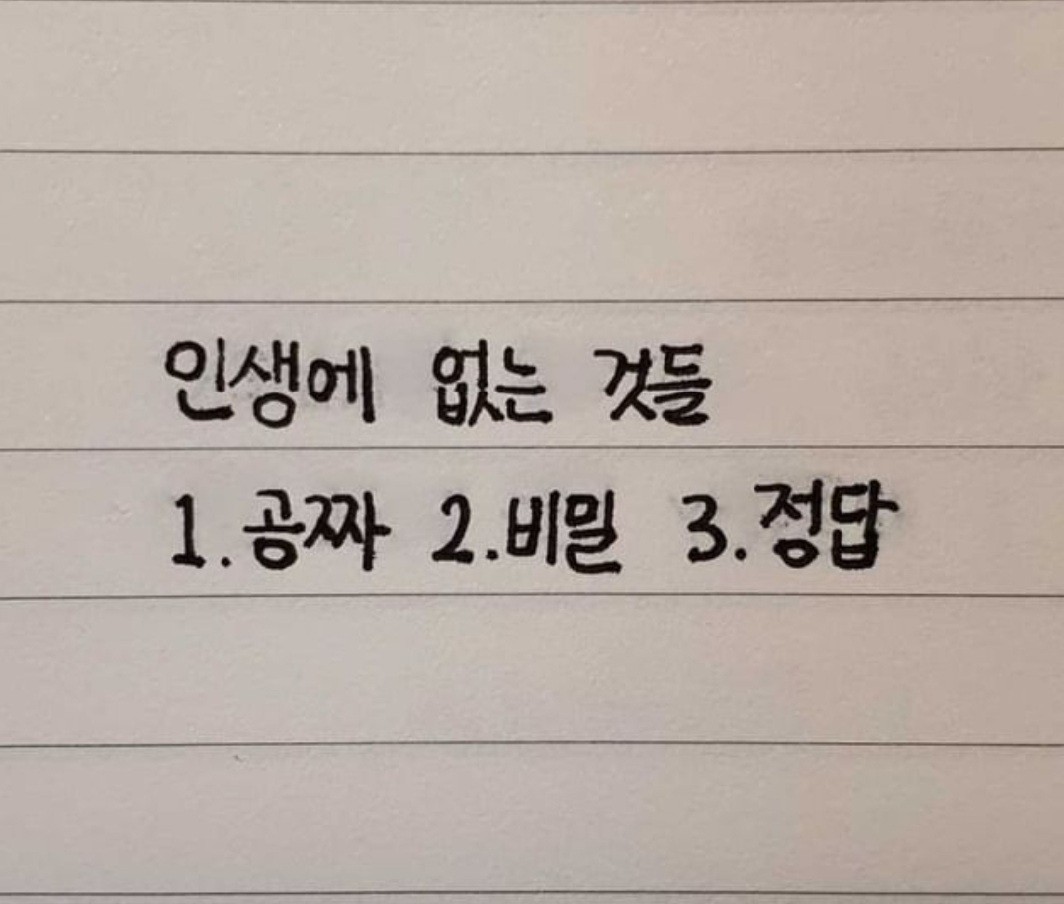 인생에 없는 것들
1. 공짜 2. 비밀 3. 정답